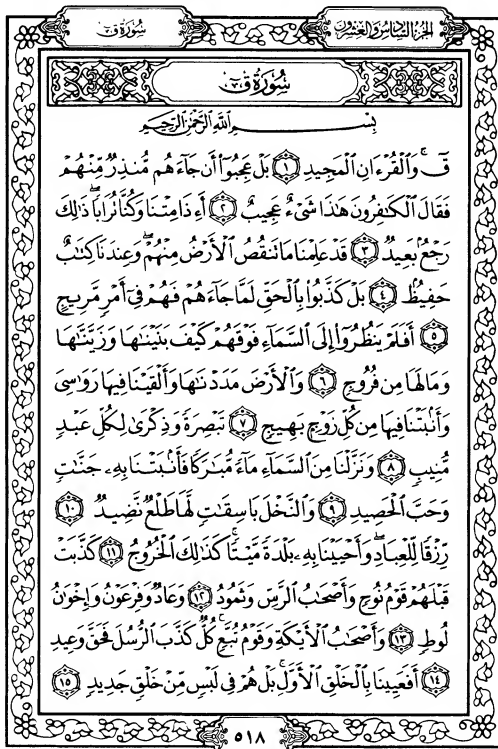 الجزء السادس والعشرون
سورة ق
سورة ق
بسم الله الرحمن الرحيم
قٓۚ وَٱلْقُرْءَانِ ٱلْمَجِيدِ ١ بَلْ عَجِبُوٓا۟ أَن جَآءَهُم مُّنذِرٌ مِّنْهُمْ
فَقَالَ ٱلْكَٰفِرُونَ هَٰذَا شَىْءٌ عَجِيبٌ ٢ أَءِذَا مِتْنَا وَكُنَّا تُرَابًا ۖ ذَٰلِكَ
رَجْعٌۢ بَعِيدٌ ٣ قَدْ عَلِمْنَا مَا تَنقُصُ ٱلْأَرْضُ مِنْهُمْ ۖ وَعِندَنَا كِتَٰبٌ
حَفِيظٌۢ ٤ بَلْ كَذَّبُوا۟ بِٱلْحَقِّ لَمَّا جَآءَهُمْ فَهُمْ فِىٓ أَمْرٍ مَّرِيجٍ
٥ أَفَلَمْ يَنظُرُوٓا۟ إِلَى ٱلسَّمَآءِ فَوْقَهُمْ كَيْفَ بَنَيْنَٰهَا وَزَيَّنَّٰهَا
وَمَا لَهَا مِن فُرُوجٍ ٦ وَٱلْأَرْضَ مَدَدْنَٰهَا وَأَلْقَيْنَا فِيهَا رَوَٰسِىَ
وَأَنۢبَتْنَا فِيهَا مِن كُلِّ زَوْجٍۭ بَهِيجٍ ٧ تَبْصِرَةً وَذِكْرَىٰ لِكُلِّ عَبْدٍ
مُّنِيبٍ ٨ وَنَزَّلْنَا مِنَ ٱلسَّمَآءِ مَآءً مُّبَٰرَكًا فَأَنۢبَتْنَا بِهِۦ جَنَّٰتٍ
وَحَبَّ ٱلْحَصِيدِ ٩ وَٱلنَّخْلَ بَاسِقَٰتٍ لَّهَا طَلْعٌ نَّضِيدٌ ١٠
رِّزْقًا لِّلْعِبَادِ ۖ وَأَحْيَيْنَا بِهِۦ بَلْدَةً مَّيْتًا ۚ كَذَٰلِكَ ٱلْخُرُوجُ ١١ كَذَّبَتْ
قَبْلَهُمْ قَوْمُ نُوحٍ وَأَصْحَٰبُ ٱلرَّسِّ وَثَمُودُ ١٢ وَعَادٌ وَفِرْعَوْنُ وَإِخْوَٰنُ
لُوطٍ ١٣ وَأَصْحَٰبُ ٱلْأَيْكَةِ وَقَوْمُ تُبَّعٍ ۚ كُلٌّ كَذَّبَ ٱلرُّسُلَ فَحَقَّ وَعِيدِ
١٤ أَفَعَيِينَا بِٱلْخَلْقِ ٱلْأَوَّلِ ۚ بَلْ هُمْ فِى لَبْسٍ مِّنْ خَلْقٍ جَدِيدٍ ١٥
٥١٨